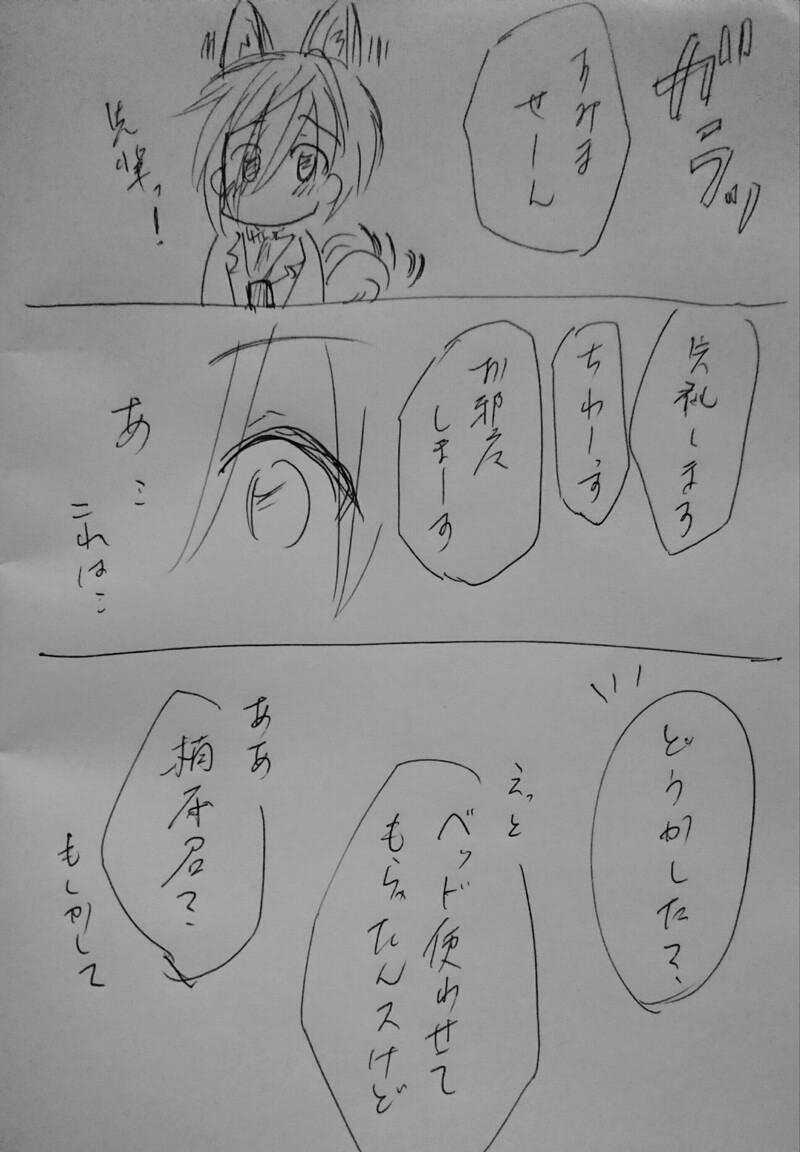 ガラッ
すみま
せーん
先輩っ!
失礼しまっす
ちわーっす
お邪魔
しまーす
あ…
これは…
どうかした?
えっと
ベッド使わせて
もらったんスけど
ああ
君?
もしかして